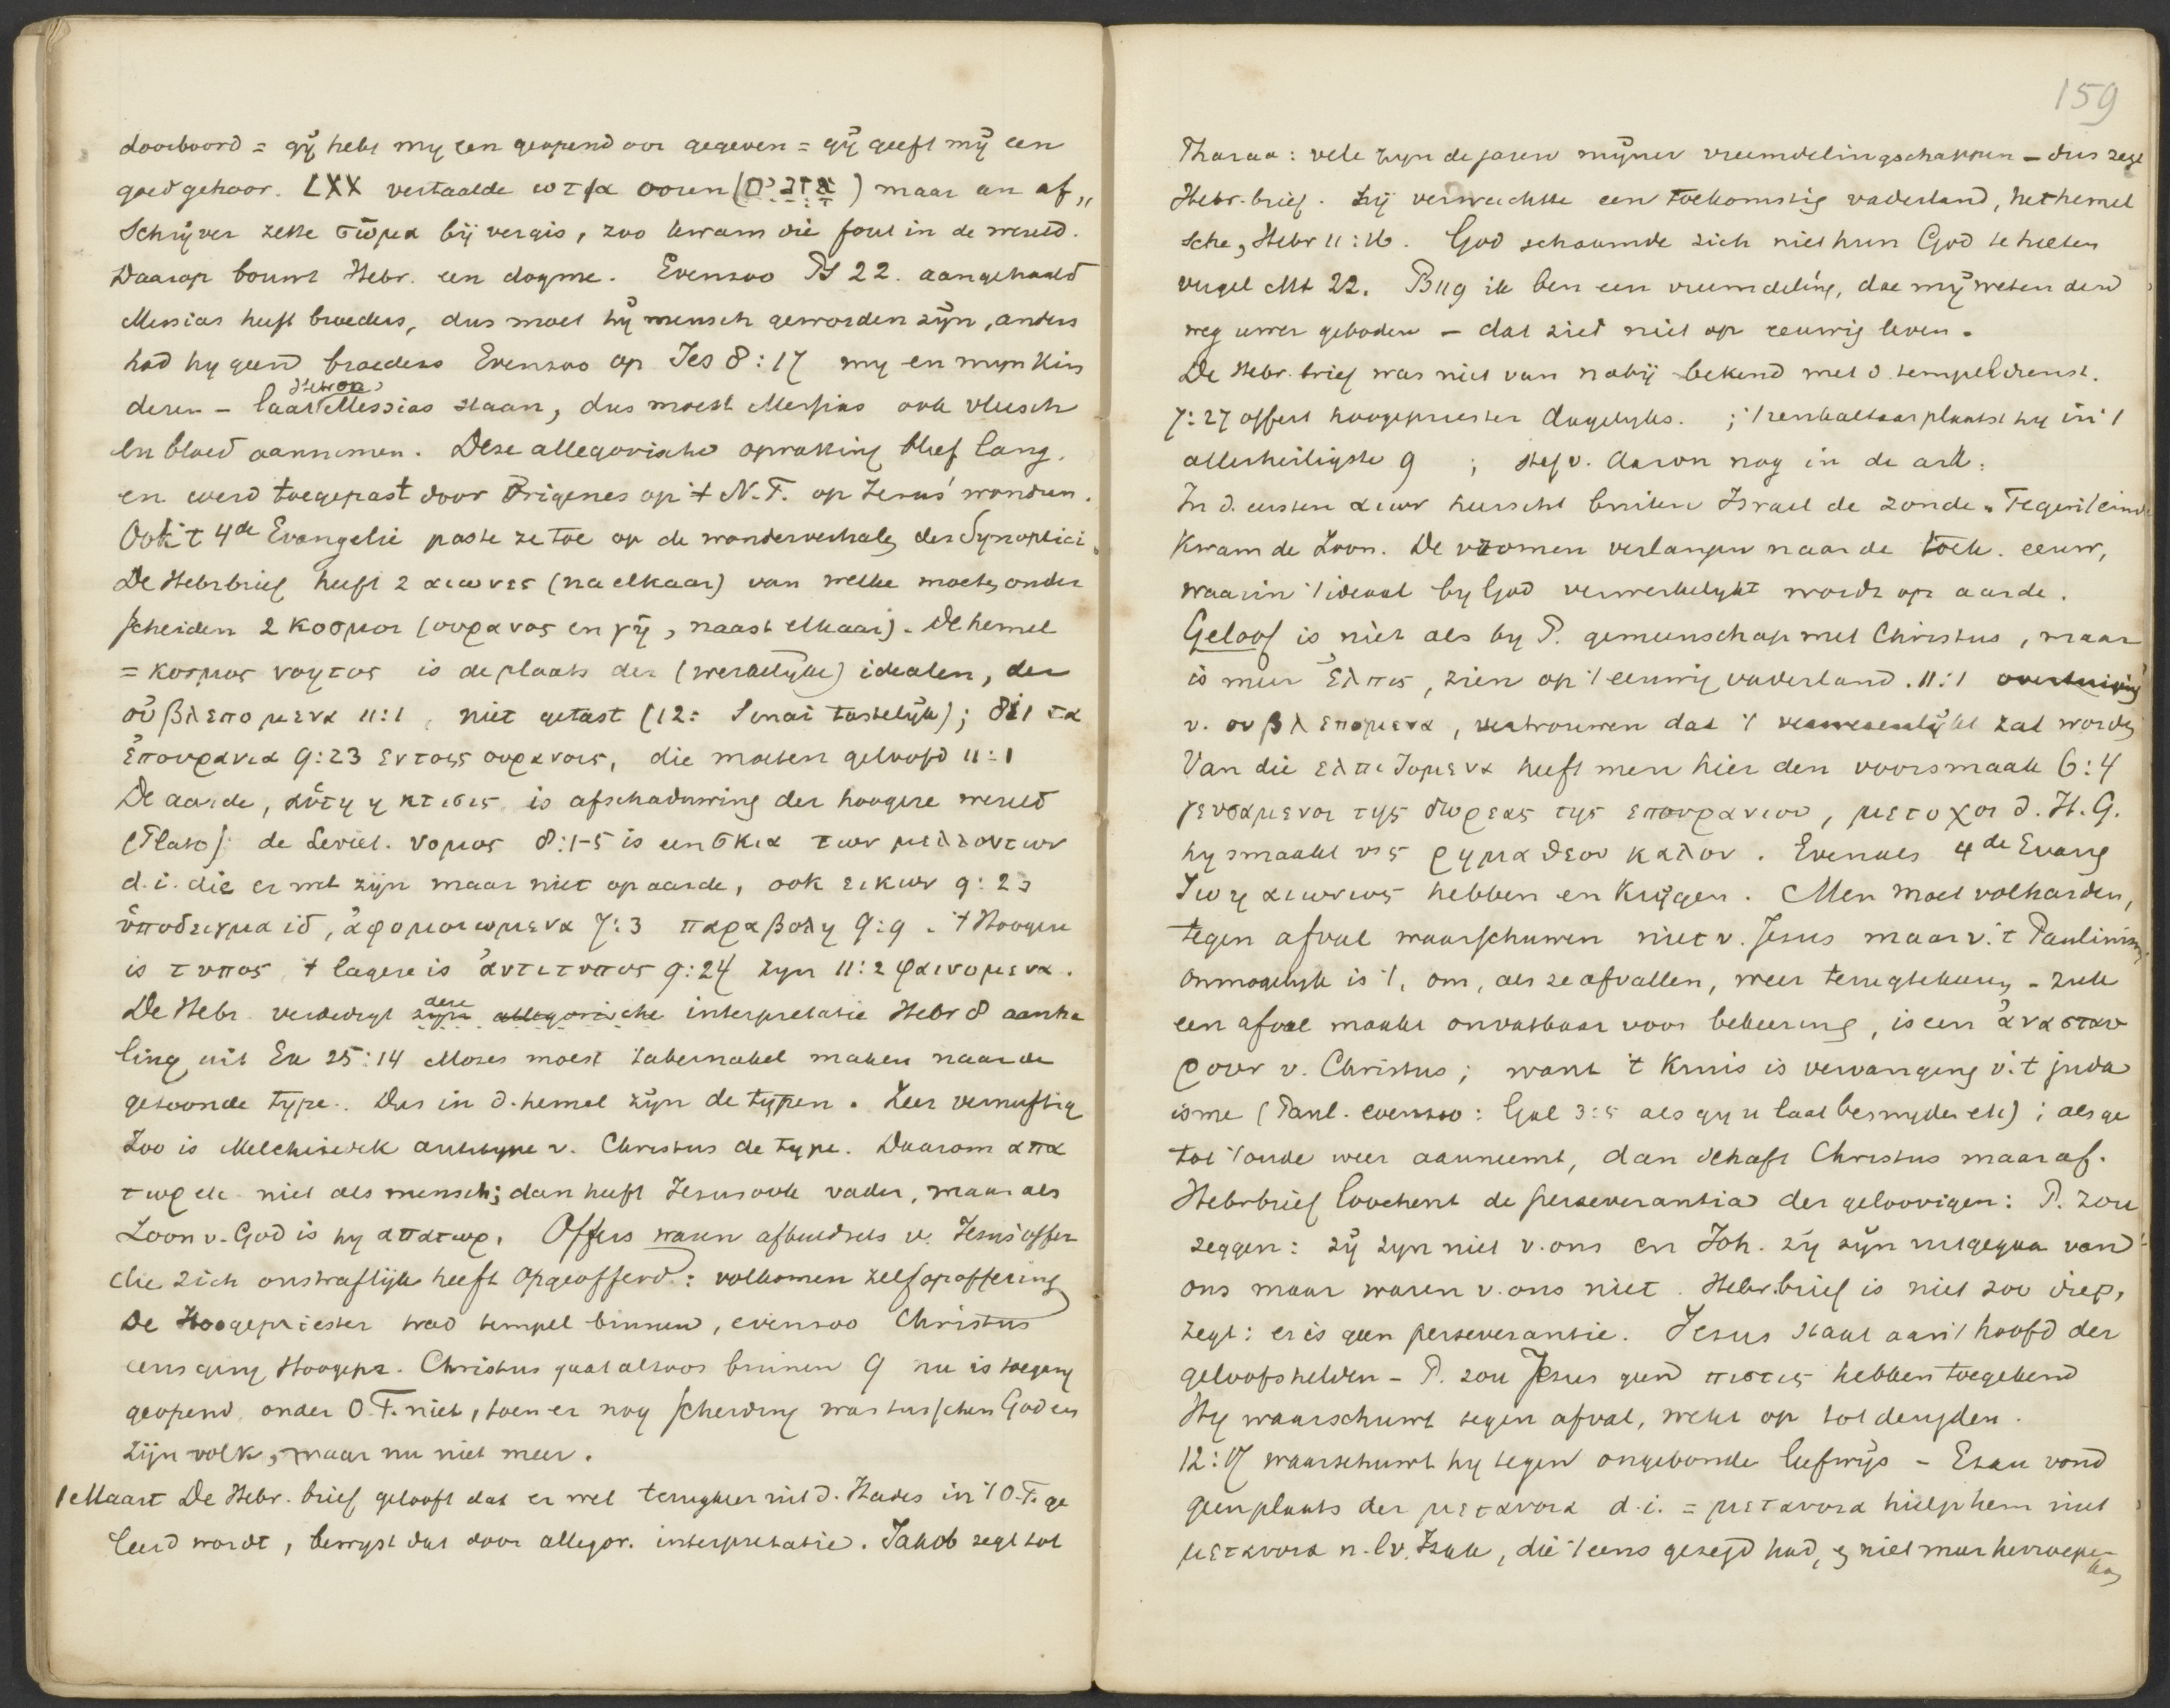 doorboord = gÿ hebt my een geopend oor gegeven = gÿ geeft mÿ een
goed gehoor. LXX vertaalde ωτια ooren (אזנים) maar een af„
Schrÿver zette σῶμα bÿ vergis, zoo kwam die fout in de wereld.
Daarop bouwt Hebr. een dogme. Evenzoo Ps 22. aangehaald
Messias heeft broeders, dus moet hÿ mensch geworden zÿn, anders
had hy geen broeders Evenzoo op Jes 8:17 my en myn Kin
deren – laat Messias staan, dus moest Messias ook vleesch
en bloed aannemen. Deze allegorische opvatting bleef lang.
en werd toegepast door Origenes op 't N.T. op Jezus' wonderen.
Ook 't 4de Evangelie paste ze toe op de wonderverhalen der Synoptici.
De Hebrbrief heeft 2 αιωνες (na elkaar) van welke moeten onder
scheiden 2 κοσμοι (ουρανος en γῆ, naast elkaar). De hemel
= κοσμος νοητος is de plaats der (werkelÿke) idealen, der
οὐ βλεπομενα 11:1, niet getast (12: Sinai tastelÿk); διι τα
ἐπουρανια 9:23 εν τοις ουρανοις, die moeten geloofd 11:1
De aarde, αὕτη η κτισις is afschaduwing der hoogere wereld
(Plato): de Leviet. νομος 8:1-5 is een σκια των μελλοντων
d.i. die er wel zÿn maar niet op aarde, ook εικων 9:23
ὑποδειγμα id, ἀφομοιωμενα 7:3 παραβολη 9:9. 't Hoogere
is τυπος 't lagere is ἀντιτυπος 9:24 zyn 11:2 φαινομενα.
De Hebr. verdedigt zÿn deze allegorische interpretatie Hebr 8 aanha
ling uit Ex 25:14 Mozes moest tabernakel maken naar de
getoonde type. Dus in d. hemel zÿn de typen. Zeer vernuftig
Zoo is Melchizedek antitype v. Christus de type. Daarom απα
τωρ etc niet als mensch; dan heeft Jezus ook vader, maar als
Zoon v. God is hy απατωρ. Offers waren afbeeldsels v. Jezus' offer
die zich onstraflÿk heeft opgeofferd: volkomen zelfopoffering
De Hoogepriester trad tempel binnen, evenzoo Christus
eens ging Hoogepr. Christus gaat altoos binnen 9 nu is toegang
geopend onder O.T. niet, toen er nog scheiding was tusschen God en
zijn volk, maar nu niet meer.
1 Maart De Hebr. brief gelooft dat er wel terugkeer uit d. Hades in 't O.T. ge
leerd wordt, bewyst dat door allegor. interpretatie. Jakob zegt tot
159
Pharao: vele zyn de jaren mÿner vreemdelingschappen – dus zegt
Hebr. brief. hÿ verwachtte een toekomstig vaderland, het hemel
sche, Hebr 11:16. God schaamde zich niet hun God te heeten
vergel Mt 22. Ps 119 ik ben een vreemdeling, doe mÿ weten den
weg uwer geboden – dat ziet niet op eeuwig leven.
De Hebr. brief was niet van nabÿ bekend met d. tempeldienst.
7:27 offert hoogepriester dagelyks. ; 't reukaltaar plaatst hy in 't
allerheiligste 9 ; staf v. Aaron nog in de ark:
In d. eersten αιων heerscht buiten Israel de zonde. Tegen 't einde
Kwam de Zoon. De vromen verlangen naar de toek. eeuw,
waarin 't ideaal by God verwerkelykt wordt op aarde.
Geloof is niet als by P. gemeenschap met Christus, maar
is meer ἐλπις, zien op 't eeuwig vaderland. 11:1 overtuiging
v. ου βλεπομενα, vertrouwen dat 't verwezenlÿkt zal worden
Van die ελπιζομενα heeft men hier den voorsmaak 6:4
γευσαμενοι της δωρεας της επουρανιου, μετοχοι d. H.G.
hy smaakt ρημα θεου καλον. Evenals 4de Evang
ζωη αιωνιος hebben en krÿgen. Men moet volharden,
tegen afval waarschuwen niet v. Jesus maar v. 't Paulinism
Onmogelyk is 't, om, als ze afvallen, weer terugtekeeren – zulk
een afval maakt onvatbaar voor bekeering, is een ἀνασταυ
ρουν v. Christus; want 't Kruis is vervanging v. 't juda
isme (Paul. evenzoo: Gal 3:5 als gy u laat besnyden etc); als ge
tot 't oude weer aanneemt, dan schaft Christus maar af.
Hebrbrief loochent de perseverantia der geloovigen: P. zou
zeggen: zÿ zyn niet v. ons en Joh. zÿ zÿn uitgegaan van
ons maar waren v. ons niet. Hebr.brief is niet zoo diep,
zegt: er is geen perseverantie. Jesus staat aan 't hoofd der
geloofshelden – P. zou Jezus geen πιστις hebben toegekend
Hy waarschuwt tegen afval, wekt op tot
12:17 waarschuwt hy tegen ongebonde leefwÿs – Esau vond
geen plaats der μετανοια d.i. = μετανοια hielp hem niet
μετανοια n.l v. Izaak, die 't eens gezegd had, en niet meer herroepen
kon